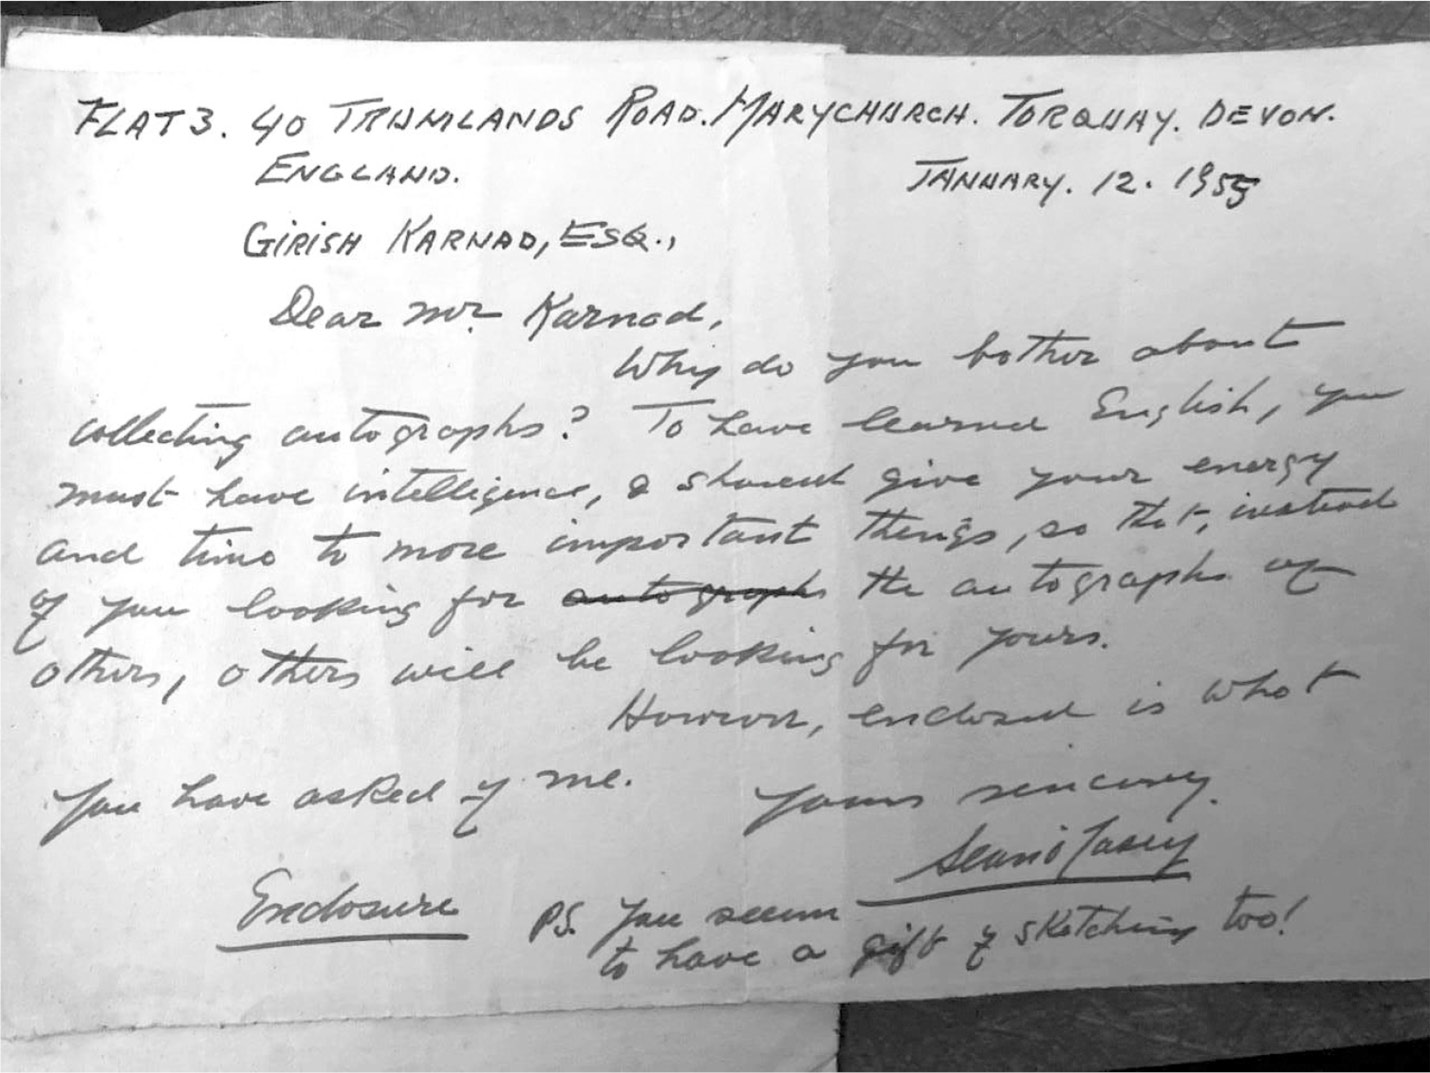 FLAT 3. 40 TRUMLANDS ROAD. MARYCHURCH. TORQUAY. DEVON.
ENGLAND.
JANUARY. 12. 1955
GIRISH KARNAD, ESQ.,
Dear Mr Karnad,
Why do you bother about
collecting autographs? To have learned English, you
must have intelligence, & should give your energy
and time to more important things, so that, instead
of you looking for autographs the autographs of
others, others will be looking for yours.
However, enclosed is what
you have asked of me.
Yours sincerely.
Sean O'Casey
Enclosure
PS. You seem
to have a gift of sketching too!